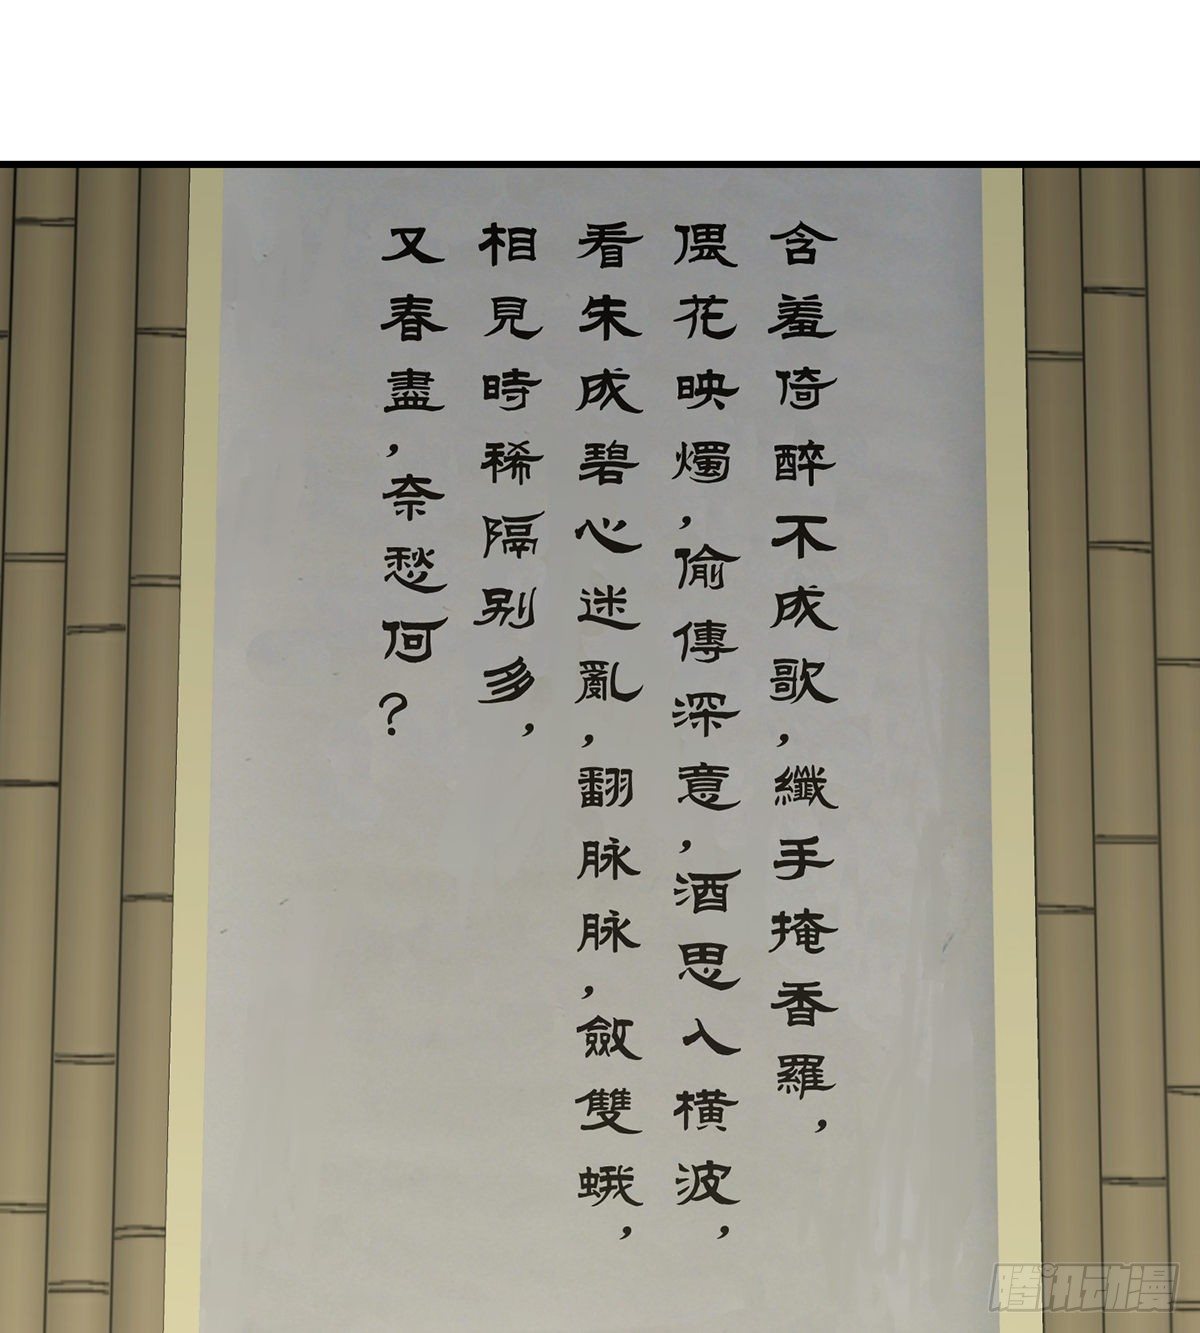 含羞倚醉不成歌，纖手掩香羅，
偎花映燭，偷傳深意，酒思入橫波，
看朱成碧心迷亂，翻脉脉，斂雙蛾，
相見時稀隔别多，
又春盡，奈愁何？
腾讯动漫